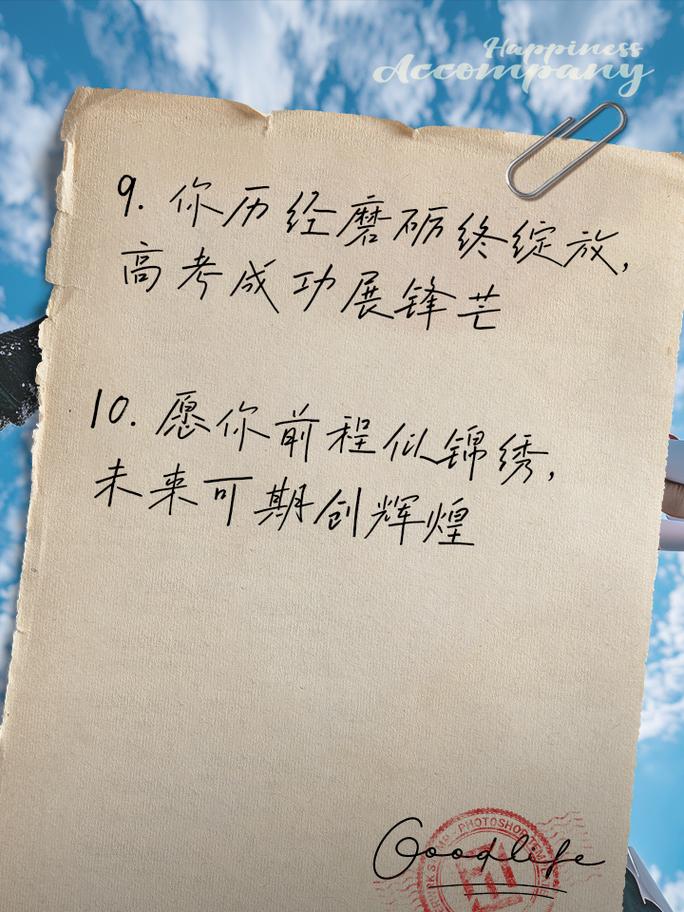 Happiness
Accompany
9. 你历经磨砺终绽放,
高考成功展锋芒
10. 愿你前程似锦绣,
未来可期创辉煌
Goodlife
PHOTOSHOP